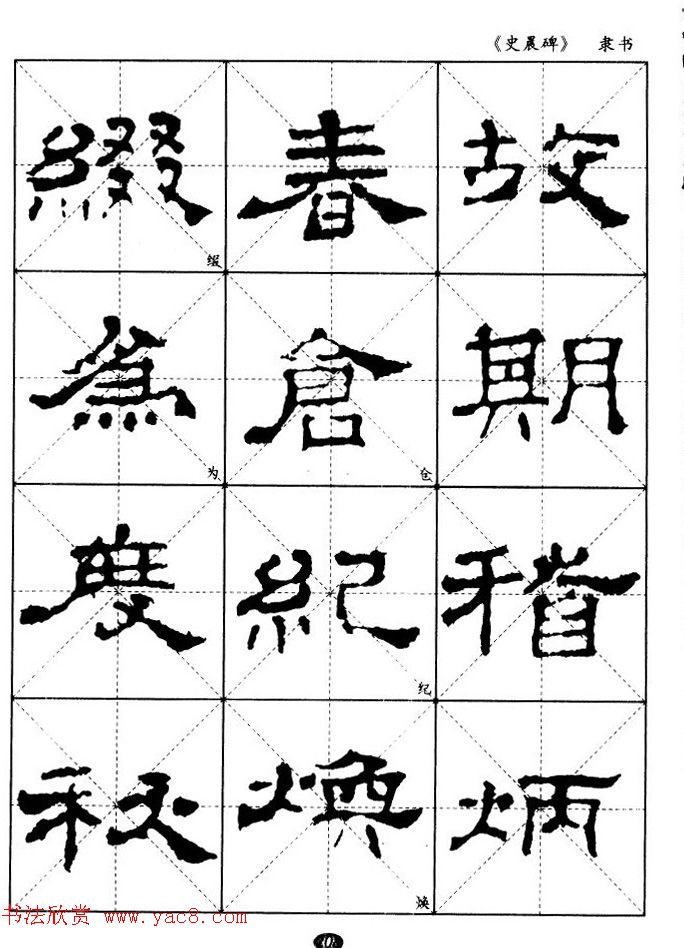 《史晨碑》 隶书
故期稽炳
春倉紀煥
仓
纪
焕
綴為度秋
缀
为
书法欣赏 www.yac8.com